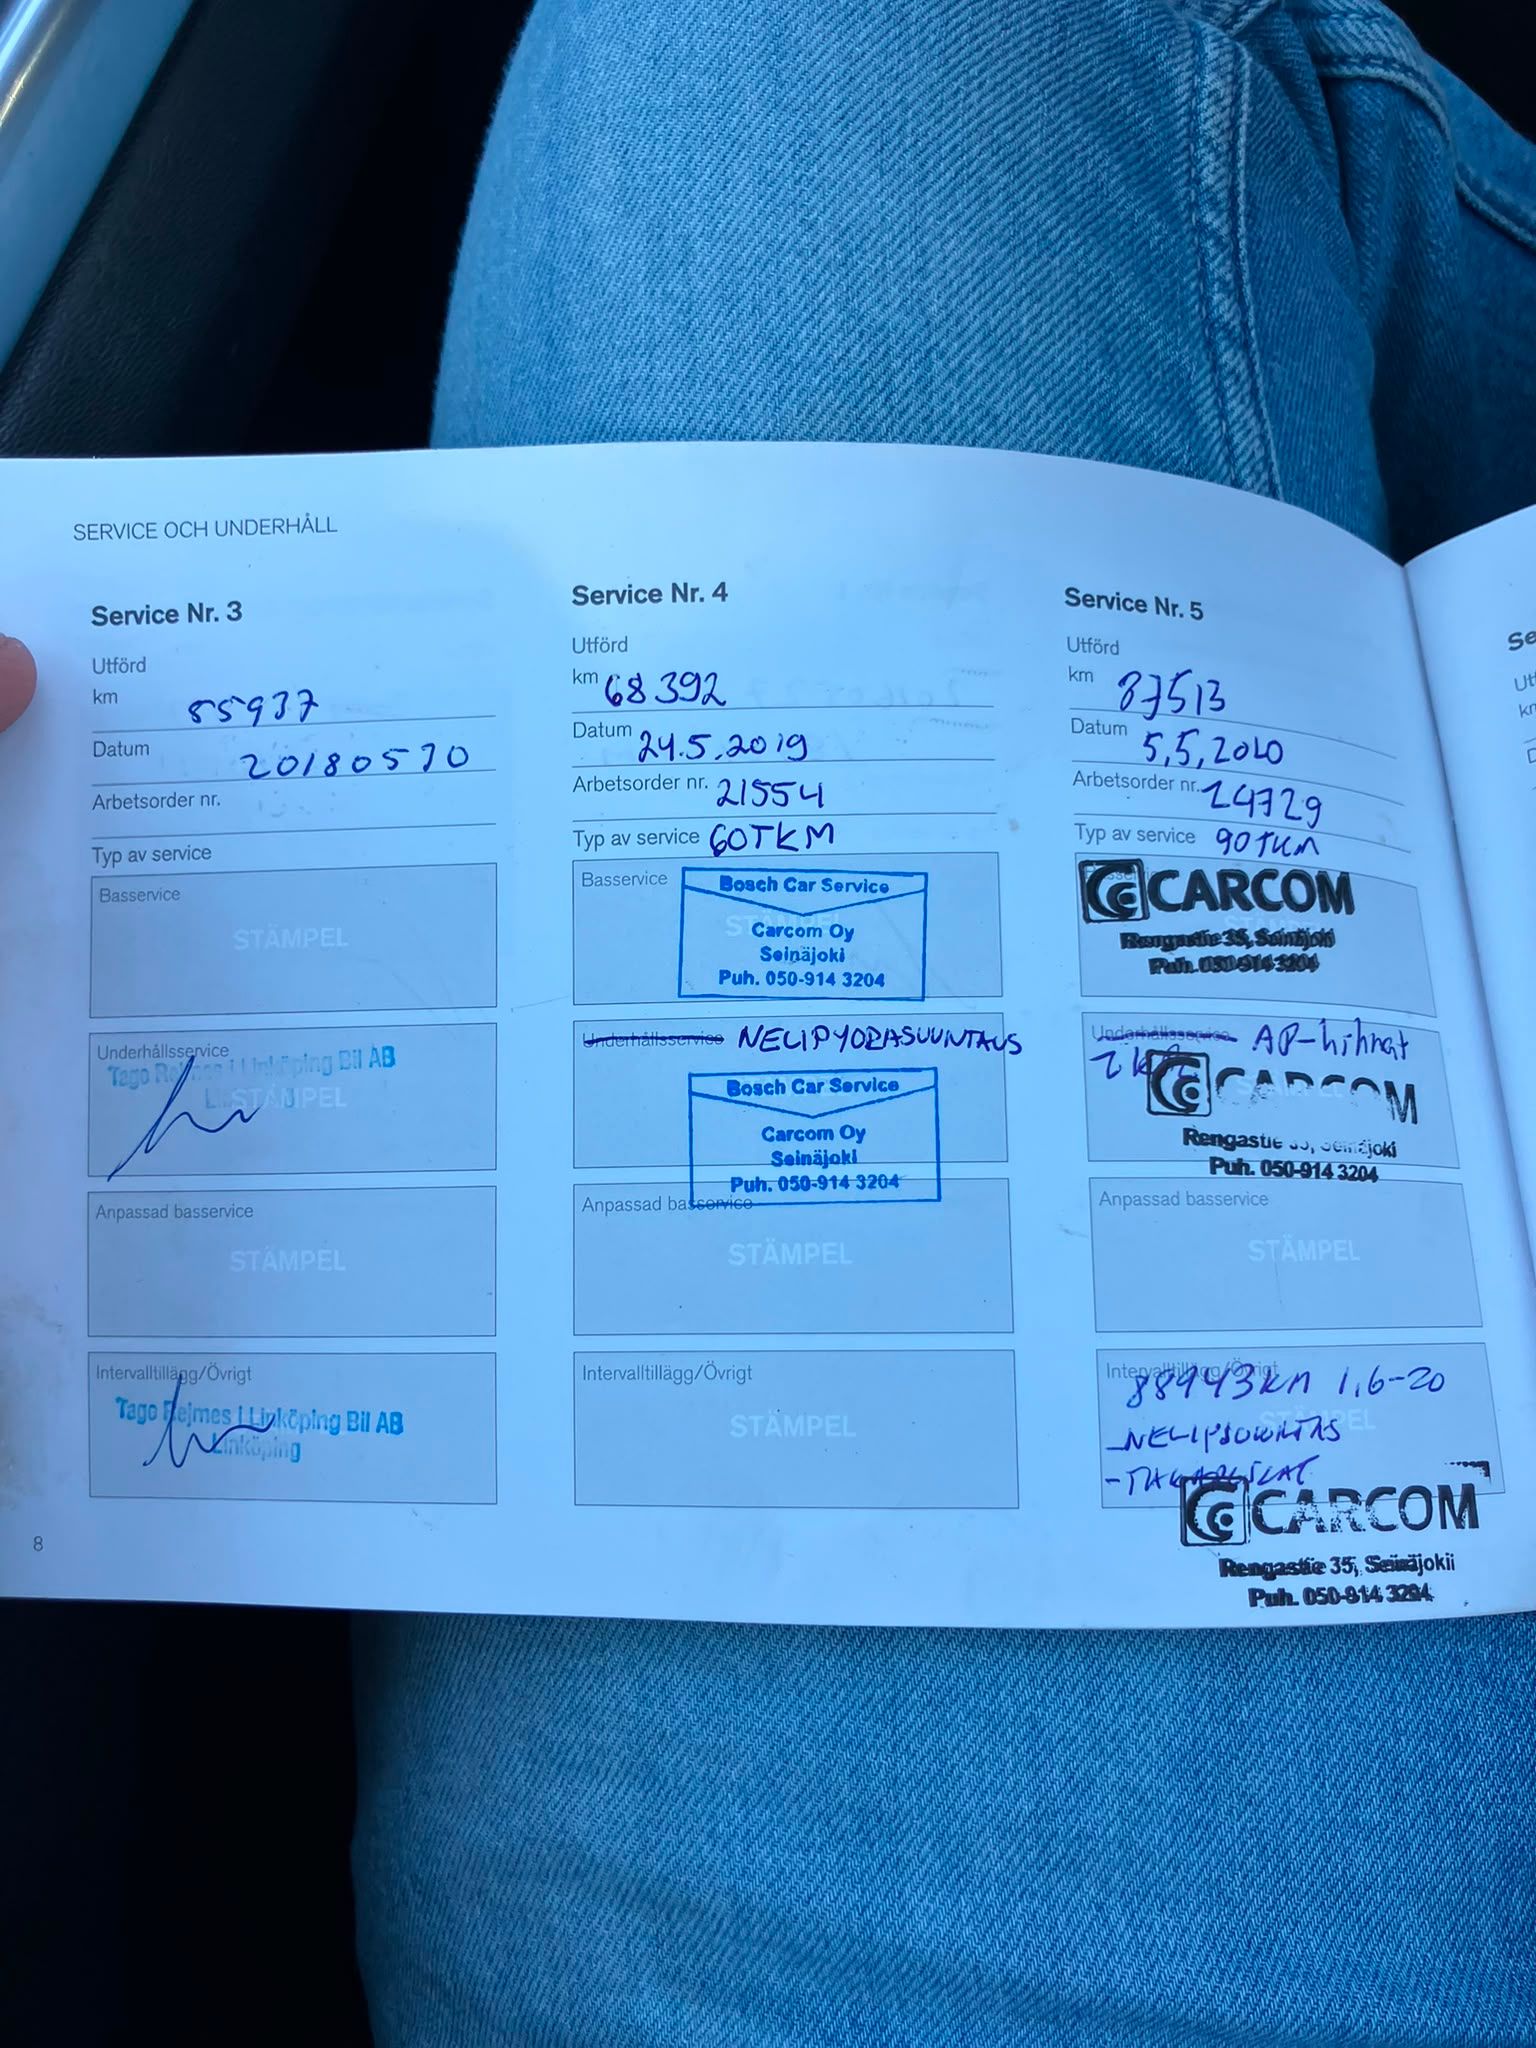 SERVICE OCH UNDERHÅLL
Service Nr. 3
Utförd
km 55937
Datum 20180530
Arbetsorder nr.
Typ av service
Basservice
STÄMPEL
Underhållsservice
Tago Rejmes i Linköping Bil AB
STÄMPEL
Anpassad basservice
STÄMPEL
Intervalltillägg/Övrigt
Tago Rejmes i Linköping Bil AB
Linköping
8
Service Nr. 4
Utförd
km 68392
Datum 24.5.2019
Arbetsorder nr. 21554
Typ av service 60TKM
Basservice
STÄMPEL
Bosch Car Service
Carcom Oy
Seinäjoki
Puh. 050-914 3204
Underhållsservice NELIPYÖRÄSUUNTAUS
Bosch Car Service
Carcom Oy
Seinäjoki
Puh. 050-914 3204
Anpassad basservice
STÄMPEL
Intervalltillägg/Övrigt
STÄMPEL
Service Nr. 5
Utförd
km 87513
Datum 5.5.2020
Arbetsorder nr. 24729
Typ av service 90TKM
CARCOM
Rengastie 35, Seinäjoki
Puh. 050-914 3204
Underhållsservice AP-hihnat
2 kpl
CARCOM
Rengastie 35, Seinäjoki
Puh. 050-914 3204
Anpassad basservice
STÄMPEL
Intervalltillägg/Övrigt
88943KM 1.6-20
STÄMPEL
CARCOM
Rengastie 35, Seinäjoki
Puh. 050-914 3204